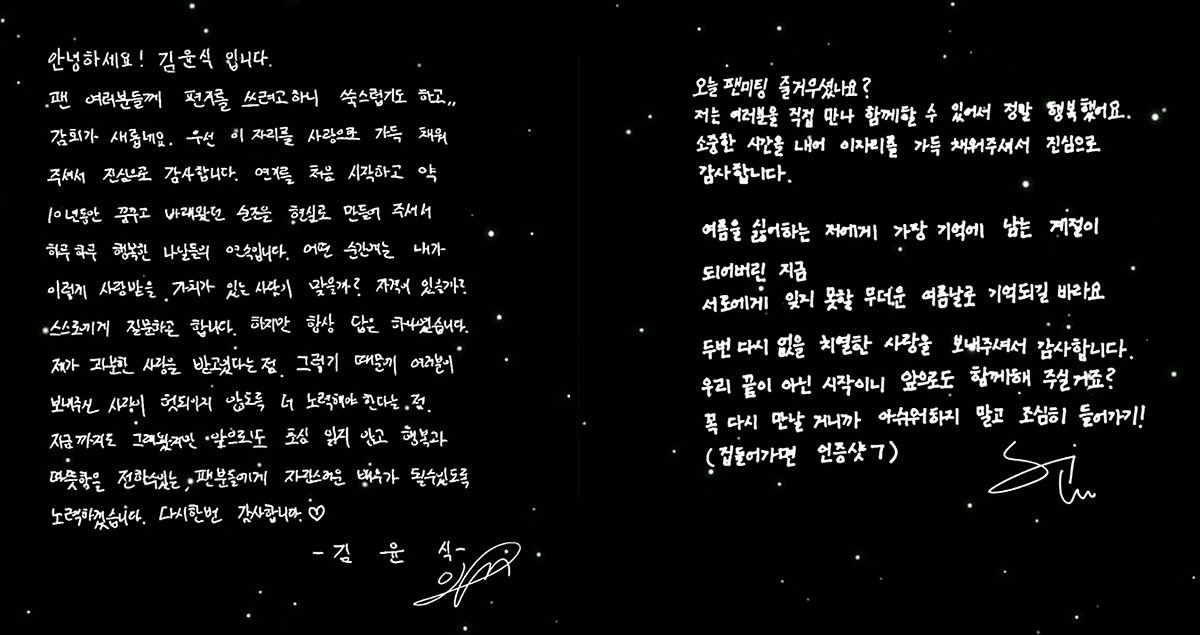 안녕하세요! 김윤식 입니다.
팬 여러분들께 편지를 쓰려고하니 쑥스럽기도 하고,,
감회가 새롭네요. 우선 이 자리를 사랑으로 가득 채워
주셔서 진심으로 감사합니다. 연기를 처음 시작하고 약
10년동안 꿈꾸고 바래왔던 순간을 현실로 만들어 주셔서
하루하루 행복한 나날들의 연속입니다. 어떤 순간에는 내가
이렇게 사랑받을 가치가 있는 사람이 맞을까? 자격이 있을까?
스스로에게 질문하곤 합니다. 하지만 항상 답은 하나였습니다.
제가 과분한 사랑을 받고있다는 점. 그렇기 때문에 여러분이
보내주신 사랑이 헛되이지 않도록 더 노력해야 한다는 점.
지금까지도 그래왔지만 앞으로도 초심 잃지 않고 행복과
따뜻함을 전할수있는, 팬분들에게 자랑스러운 배우가 될수있도록
노력하겠습니다. 다시한번 감사합니다.♡
-김 윤 식-
오늘 팬미팅 즐거우셨나요?
저는 여러분을 직접 만나 함께할 수 있어서 정말 행복했어요.
소중한 시간을 내어 이자리를 가득 채워주셔서 진심으로
감사합니다.
여름을 싫어하는 저에게 가장 기억에 남는 계절이
되어버린 지금
서로에게 잊지 못할 무더운 여름날로 기억되길 바라요
두번 다시 없을 치열한 사랑을 보내주셔서 감사합니다.
우리 끝이 아닌 시작이니 앞으로도 함께해 주실거죠?
꼭 다시 만날 거니까 아쉬워하지 말고 조심히 들어가기!
(집들어가면 인증샷ㄱ)